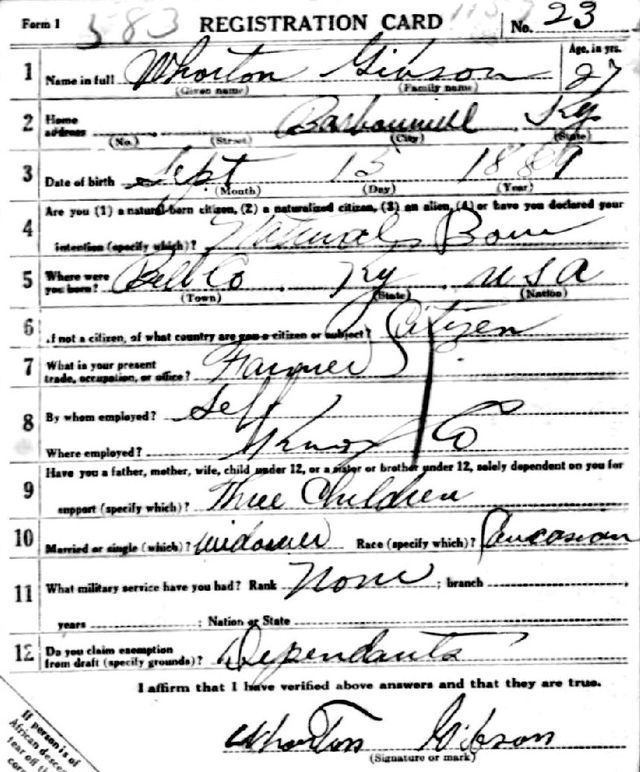 Form 1 583 REGISTRATION CARD No. 23
1 Name in full Whorton Gibson Age, in yrs. 27
(Given name) (Family name)
2 Home address Barbourville Ky
(No.) (Street) (City) (State)
3 Date of birth Sept 15 1889
(Month) (Day) (Year)
4 Are you (1) a natural-born citizen, (2) a naturalized citizen, (3) an alien, (4) or have you declared your
intention (specify which)? Natural Born
5 Where were you born? Bell Co Ky USA
(Town) (State) (Nation)
6 If not a citizen, of what country are you a citizen or subject? Citizen
7 What is your present trade, occupation, or office? Farmer
8 By whom employed? Self
Where employed? Knox Co
9 Have you a father, mother, wife, child under 12, or a sister or brother under 12, solely dependent on you for
support (specify which)? Three Children
10 Married or single (which)? widower Race (specify which)? Caucasian
11 What military service have you had? Rank None ; branch
years ; Nation or State
12 Do you claim exemption from draft (specify grounds)? Dependants
I affirm that I have verified above answers and that they are true.
Whorton Gibson
(Signature or mark)
If person is of
African desce
tear off th
cor